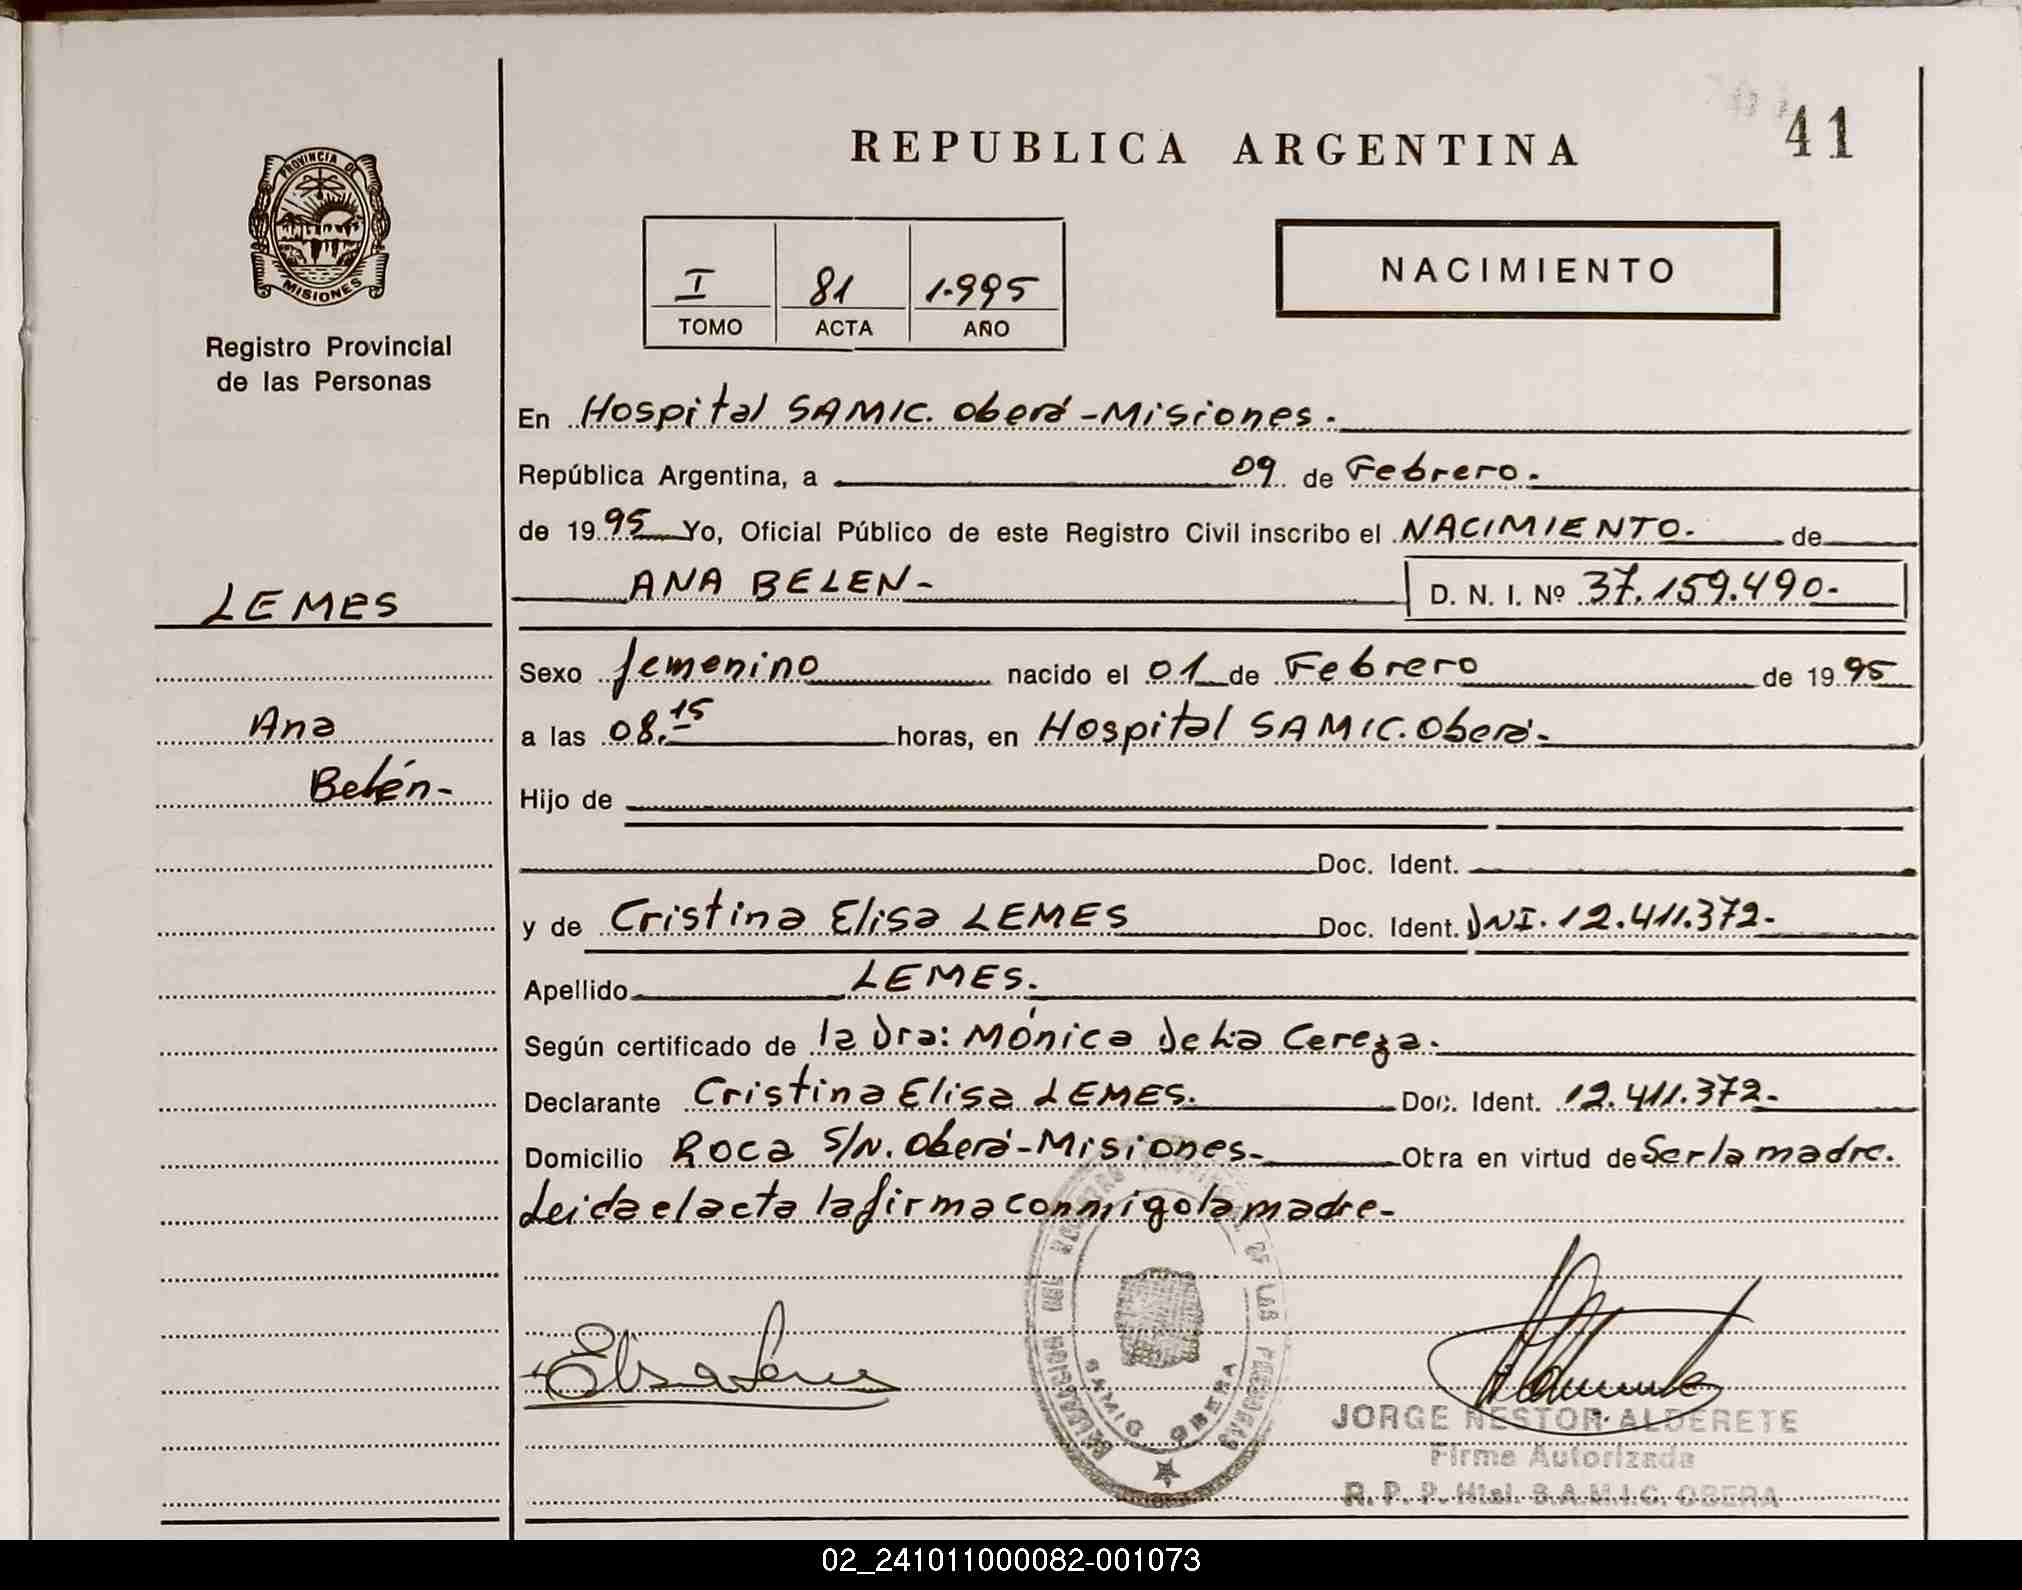 41
REPUBLICA ARGENTINA
PROVINCIA DE
MISIONES
Registro Provincial
de las Personas
I 81 1.995
TOMO ACTA AÑO
NACIMIENTO
En Hospital SAMIC. Oberá - Misiones.
República Argentina, a 09 de Febrero.
de 1995 Yo, Oficial Público de este Registro Civil inscribo el NACIMIENTO. de
LEMES
ANA BELEN- D. N. I. Nº 37.159.490-
Sexo femenino nacido el 01 de Febrero de 1995
Ana
a las 08.15 horas, en Hospital SAMIC. Oberá-
Belén-
Hijo de
Doc. Ident.
y de Cristina Elisa LEMES Doc. Ident. DNI. 12.411.372-
Apellido LEMES.
Según certificado de la Dra: Mónica Delia Cereza.
Declarante Cristina Elisa LEMES. Doc. Ident. 12.411.372-
Domicilio Roca S/N. Oberá - Misiones- Otra en virtud de Ser la madre.
Leida el acta la firma conmigo la madre-
DELEGACION DEL REGISTRO PROVINCIAL DE LAS PERSONAS
SAMIC OBERA
Elisa Lemes
JORGE NESTOR ALDERETE
Firma Autorizada
R. P. P. Htal. S.A.M.I.C. OBERA
02_241011000082-001073